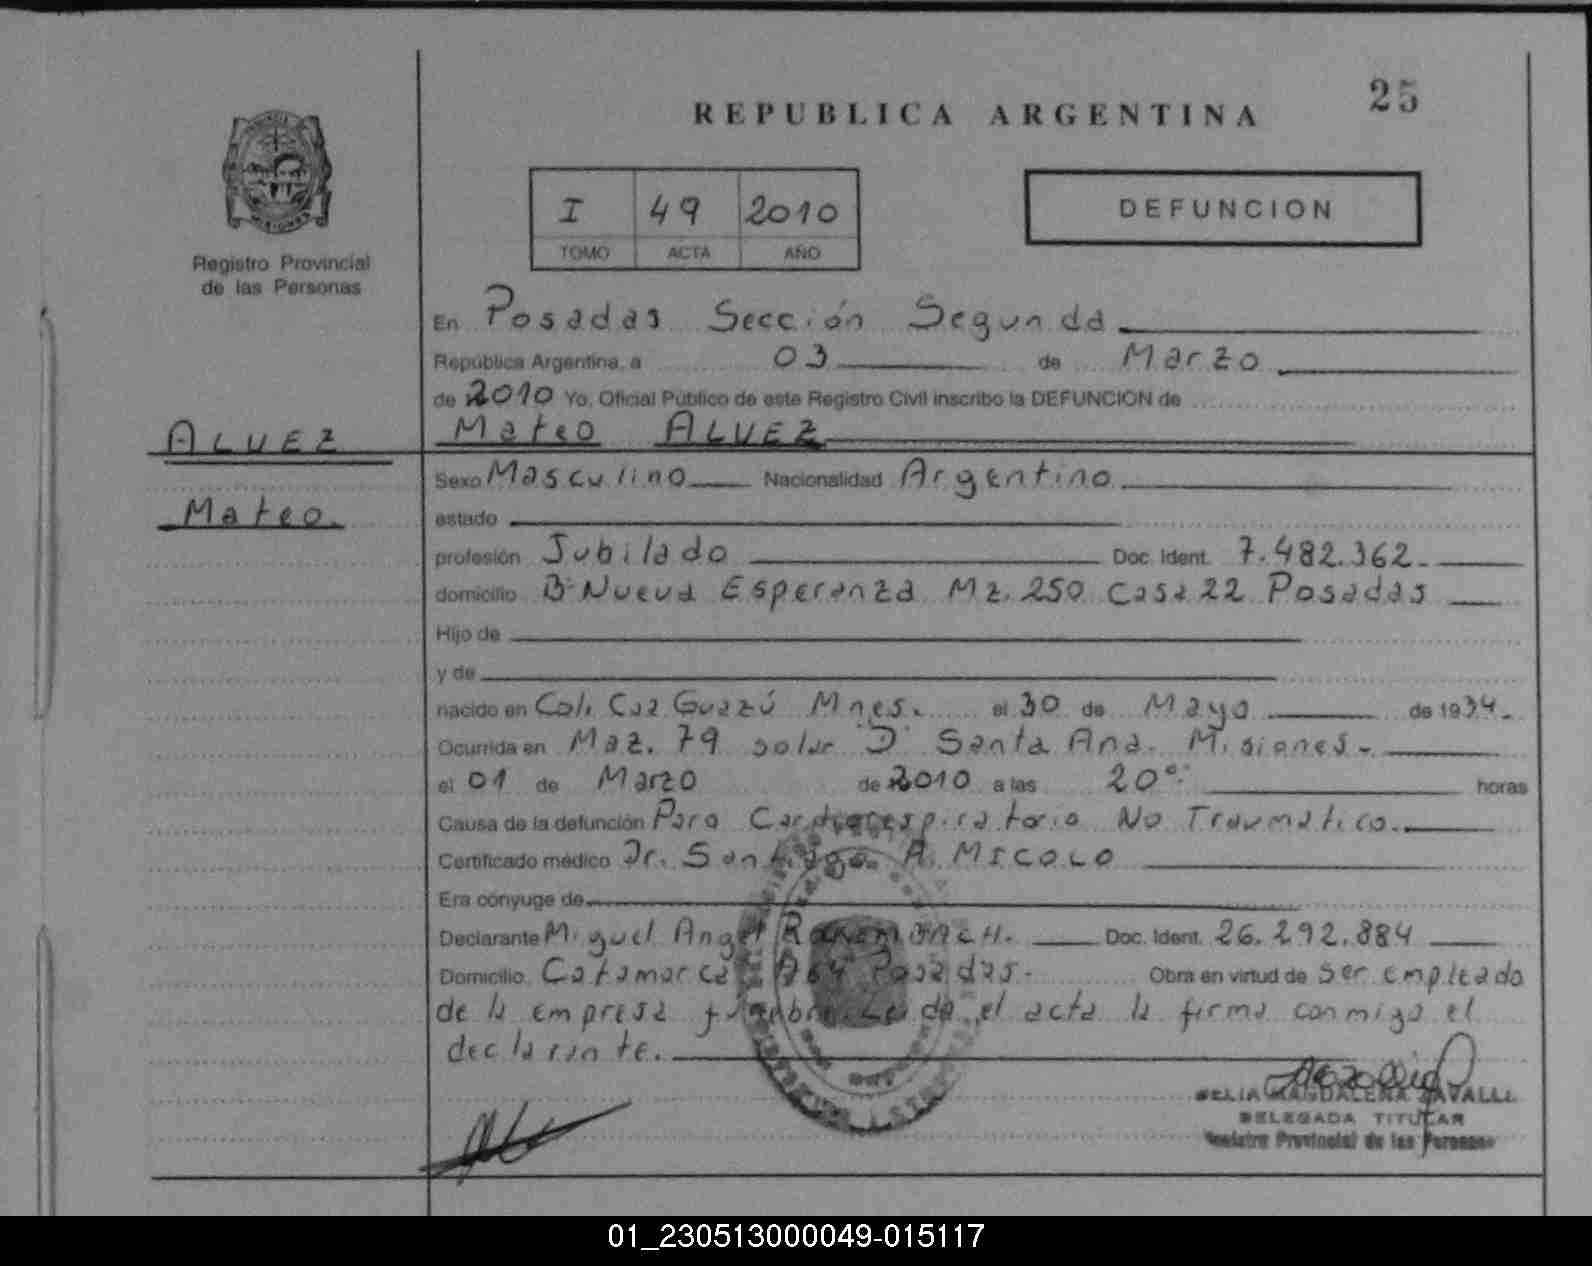 25
REPUBLICA ARGENTINA
I 49 2010
TOMO ACTA AÑO
DEFUNCION
Registro Provincial
de las Personas
En Posadas Sección Segunda
República Argentina, a 03 de Marzo
de 2010 Yo, Oficial Público de este Registro Civil inscribo la DEFUNCION de
ALVEZ
Mateo
Mateo ALVEZ
Sexo Masculino Nacionalidad Argentino
estado
profesión Jubilado Doc. Ident. 7.482.362.-
domicilio B° Nueva Esperanza Mz. 250 Casa 22 Posadas
Hijo de
y de
nacido en Col. Guazú Mnes. el 30 de Mayo de 1934.
Ocurrida en Maz. 79 solar "D" Santa Ana. Misiones.-
el 01 de Marzo de 2010 a las 20 horas
Causa de la defunción Paro Cardiorespiratorio No Traumatico.
Certificado médico Dr. Santiago A. MICOLO
Era cónyuge de
Declarante Miguel Angel Doc. Ident. 26.292.884
Domicilio Catamarca Posadas.- Obra en virtud de ser empleado
de la empresa fúnebre. Leida el acta la firma conmigo el
declarante.
MAGDALENA
DELEGADA TITULAR
Registro Provincial de las Personas
01_230513000049-015117